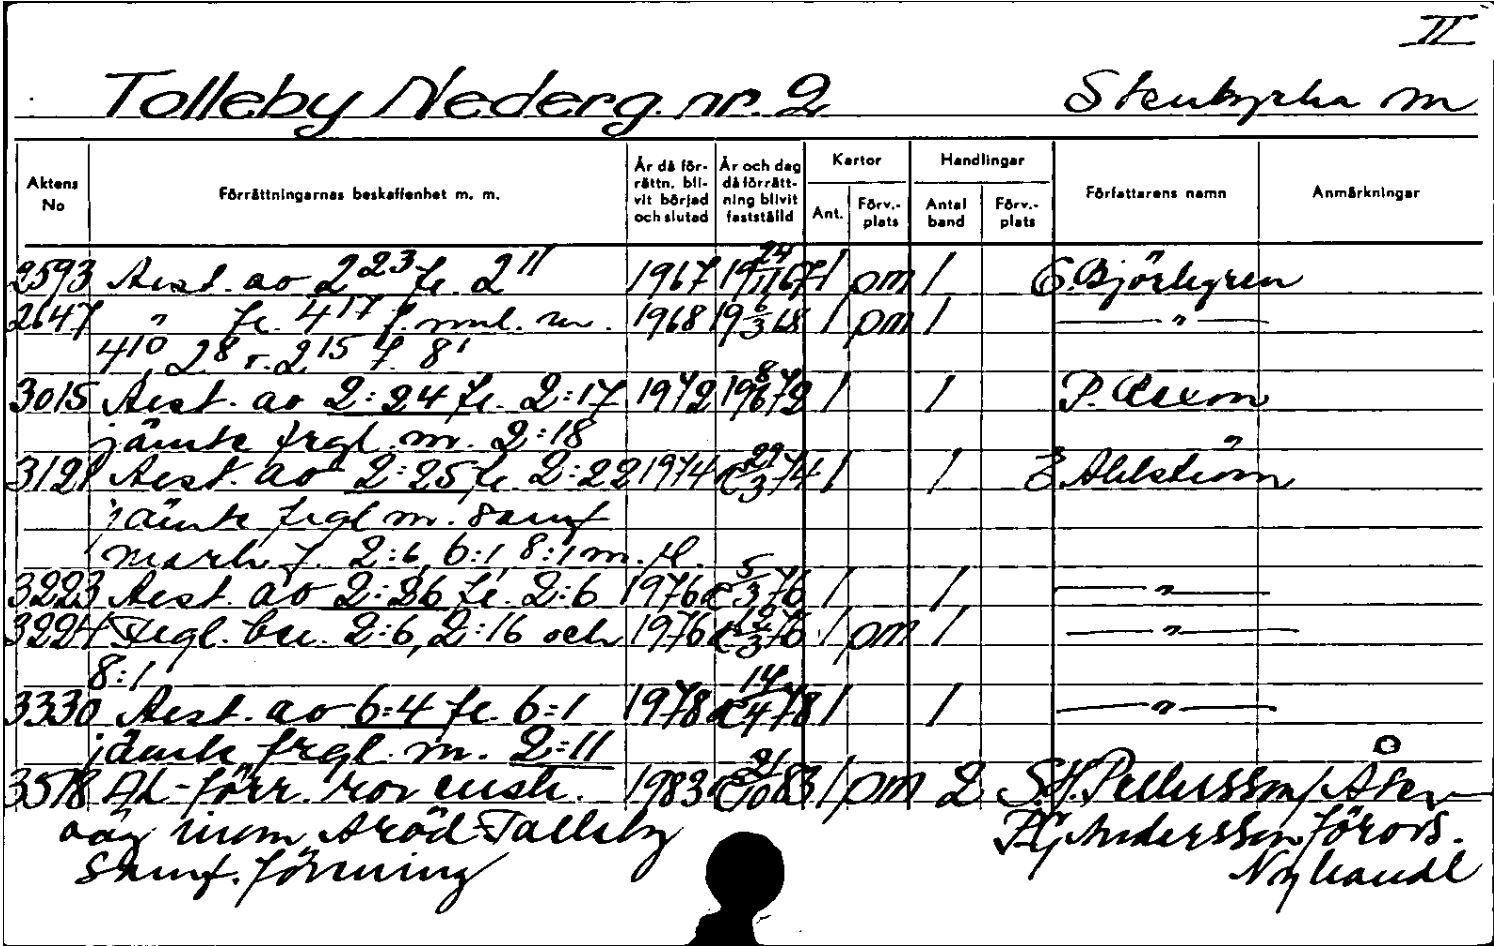 II
Tolleby Nederg. nr. 2 Stenkyrka sn
Aktens No Förrättningarnas beskaffenhet m. m. År då förrättn. blivit börjad och slutad År och dag då förrättning blivit fastställd Kartor Ant. Förv.-plats Handlingar Antal band Förv.-plats Författarens namn Anmärkningar
2593 Avst. av 2 23 fr. 2 11 1967 19 24/11 67 1 pm 1 C. Björkgren
2647 " fr. 4 17 f. 1968 19 6/3 68 1 pm 1 — " —
4 10, 2 8 o. 2 15 f. 8 1
3015 Avst. av 2:24 fr. 2:17 1972 19 8/6 72 1 1 P.
jämte frgl. m. 2:18
3121 Avst. av 2:25 fr. 2:22 1974 29/3 74 1 1 E. Ahlström
jämte frgl m. samf
mark f. 2:6, 6:1, 8:1 m. fl.
3223 Avst. av 2:26 fr. 2:6 1976 5/3 76 1 1 — " —
3224 Frgl. ber. 2:6, 2:16 och 1976 12/3 76 1 pm 1 — " —
8:1
3330 Avst. av 6:4 fr. 6:1 1978 14/4 78 1 1 — " —
jämte frgl. m. 2:11
3578 AL-förr. rör ensk. 1983 21/10 83 1 pm 2 S.H. Pettersson/
väg inom Aröd-Tolleby P.G. Andersson
Samf. förening